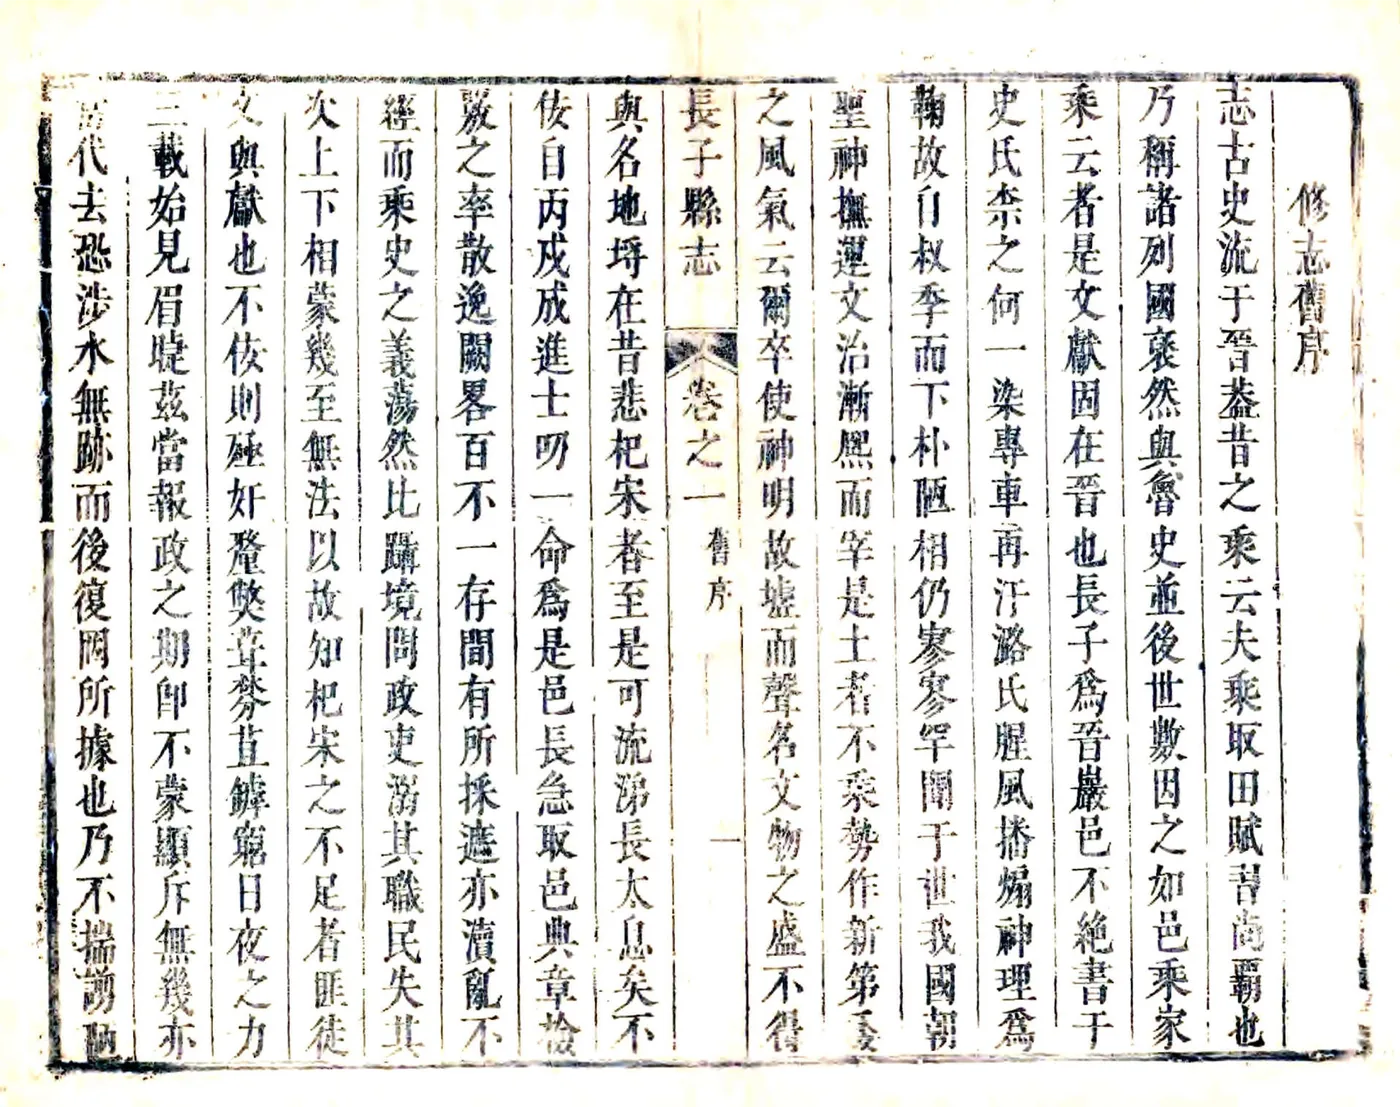 修志舊序
志古史流于晉葢昔之乘云夫乘取田賦習尚覇也
乃稱諸列國裒然與魯史並後世數因之如邑乘家
乘云者是文獻固在晉也長子為晉巖邑不絶書于
史氏柰之何一染專車再汙潞氏腥風播煽神理為
鞠故自叔季而下朴陋相仍寥寥罕聞于世我國朝
聖神撫運文治漸熙而宰是土者不乘勢作新第委
之風氣云爾卒使神明故墟而聲名文物之盛不得
長子縣志 卷之一 舊序 一
與名地埒在昔悲杞宋者至是可流涕長太息矣不
佞自丙戍成進士叨一命為是邑長急取邑典章檢
覈之率散逸闕畧百不一存間有所採遮亦瀆亂不
經而乘史之義蕩然比躡境問政吏溺其職民失其
次上下相蒙幾至無法以故知杞宋之不足者匪徒
文與獻也不佞則殛奸釐獘葺棼苴罅窮日夜之力
三載始見眉睫茲當報政之期卽不蒙顯斥無幾亦
當代去恐涉水無跡而後復罔所據也乃不揣謭陋